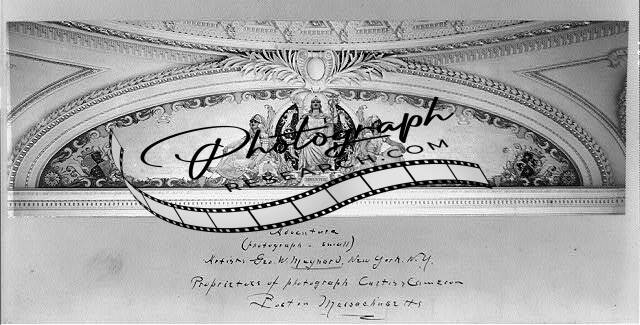 Photograph
RESEARCH.COM
Adventure
(photograph - small)
Artist: Geo. W. Maynard, New York. N.Y.
Proprietors of photograph Curtis & Cameron
Boston Massachusetts